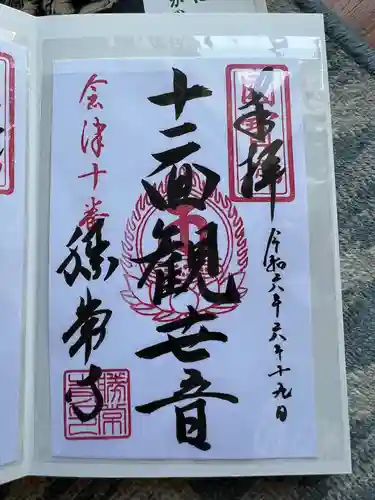 奉拝
令和六年六月十九日
十一面観世音
会津十番
勝常寺